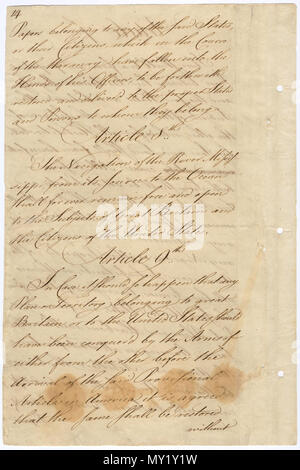 14
Papers belonging to any of the said States,
or their Citizens, which in the Course
of the War may have fallen into the
Hands of his Officers, to be forthwith
restored and deliver'd to the proper States
and Persons to whom they belong.
Article 8th.
The Navigation of the River Missis
sippi, from its source to the Ocean
shall for ever remain free and open
to the Subjects of Great Britain and
the Citizens of the United States.
Article 9th.
In Case it should so happen that any
Place or Territory belonging to great
Britain or to the United States should
have been conquered by the Arms of
either from the other before the
Arrival of the said Provisional
Articles in America it is agreed
that the same shall be restored
without
alamy
Image ID: MY1Y1W
www.alamy.com